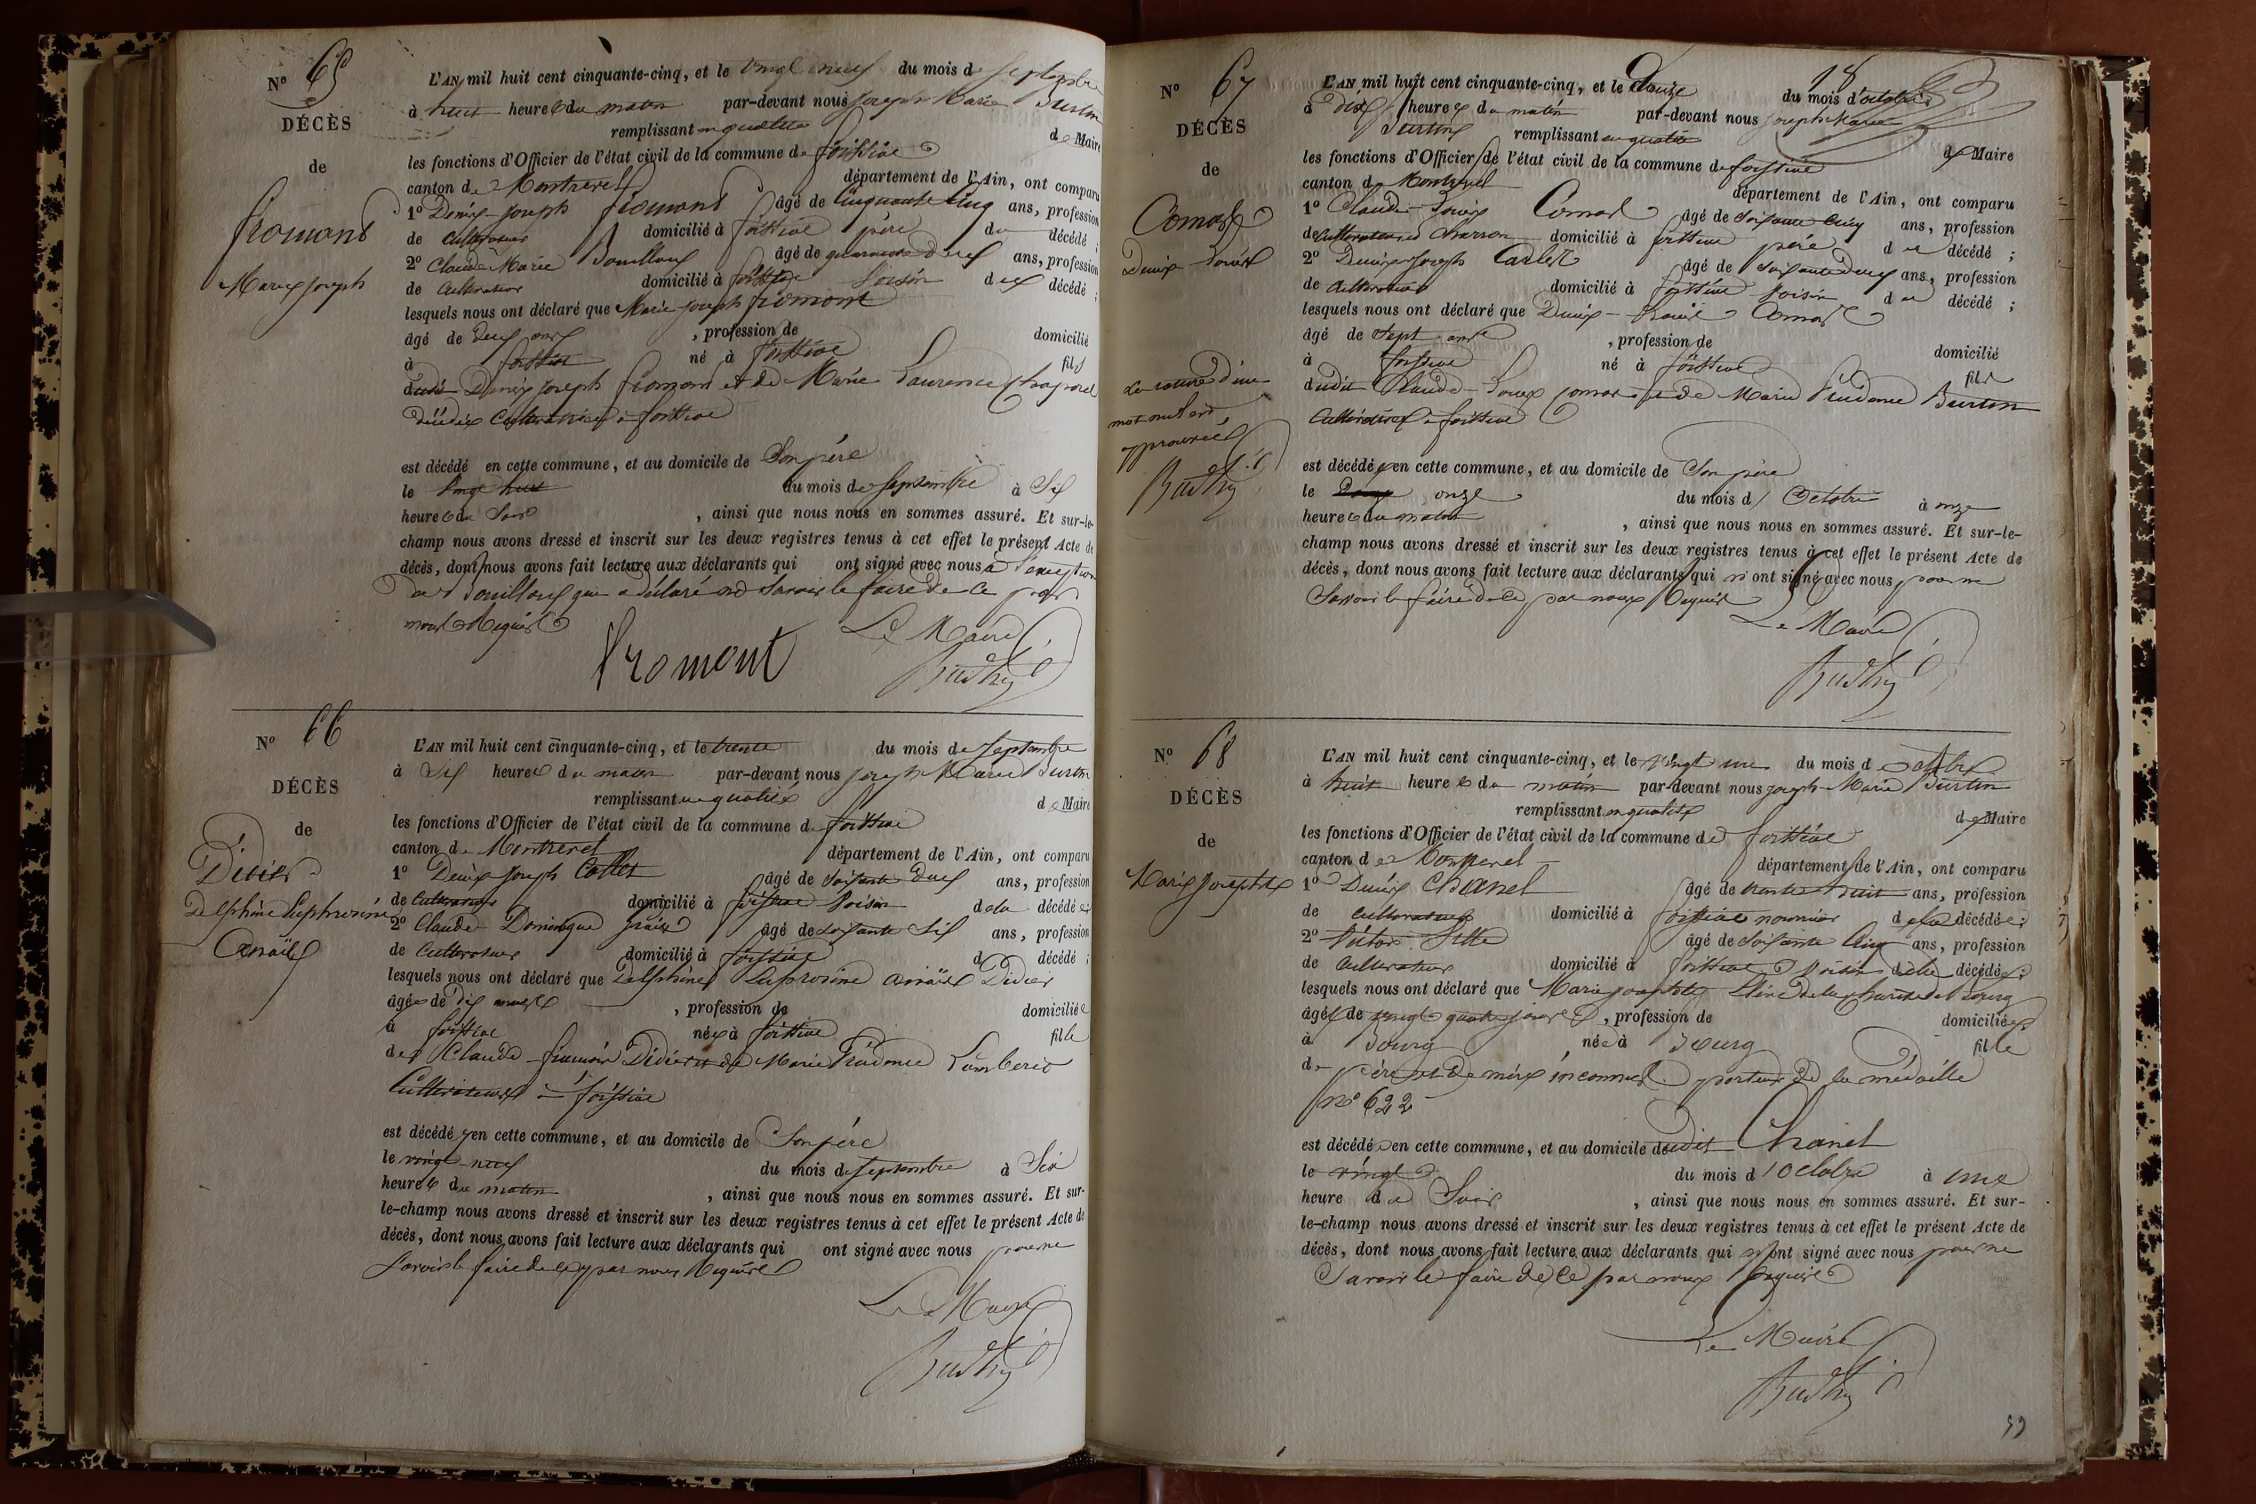 N° 65
DÉCÈS
de
fromont
Marie Joseph
L'AN mil huit cent cinquante-cinq, et le vingt neuf du mois de septembre
à huit heures du matin par-devant nous joseph Marie Burtin
remplissant en qualité de Maire
les fonctions d'Officier de l'état civil de la commune de foissiat
canton de Montrevel département de l'Ain, ont comparu
1° Denis joseph fromont âgé de cinquante cinq ans, profession
de cultivateur domicilié à foissiat père du décédé ;
2° Claude Marie Bouilloux âgé de quarante deux ans, profession
de cultivateur domicilié à foissiat voisin du décédé ;
lesquels nous ont déclaré que Marie joseph fromont
âgé de deux ans , profession de domicilié
à foissiat né à foissiat fils
dudit Denis joseph fromont et de Marie Laurence
décédée cultivatrice à foissiat
est décédé en cette commune, et au domicile de Son père
le vingt huit du mois de septembre à Six
heures du Soir , ainsi que nous nous en sommes assuré. Et sur-le-
champ nous avons dressé et inscrit sur les deux registres tenus à cet effet le présent Acte de
décès, dont nous avons fait lecture aux déclarants qui ont signé avec nous à l'exeption
de Bouilloux qui a déclaré ne Savoir le faire de ce par
nous Requis
Le Maire
fromont
N° 66
DÉCÈS
de
Didier
Delphine Euphrosine
Anaïs
L'AN mil huit cent cinquante-cinq, et le trente du mois de septembre
à Six heures du matin par-devant nous joseph Marie Burtin
remplissant en qualité de Maire
les fonctions d'Officier de l'état civil de la commune de foissiat
canton de Montrevel département de l'Ain, ont comparu
1° Denis joseph Collet âgé de soixante deux ans, profession
de cultivateur domicilié à foissiat voisin de la décédée ;
2° Claude Dominique âgé de soixante Six ans, profession
de cultivateur domicilié à foissiat d décédé ;
lesquels nous ont déclaré que Delphine Euphrosine anaïs Didier
âgée de Dix mois , profession de domiciliée
à foissiat née à foissiat fille
de Claude Didier et de Marie Prudence
Cultivateurs à foissiat
est décédée en cette commune, et au domicile de Son père
le vingt neuf du mois de septembre à Six
heures du matin , ainsi que nous nous en sommes assuré. Et sur-
le-champ nous avons dressé et inscrit sur les deux registres tenus à cet effet le présent Acte de
décès, dont nous avons fait lecture aux déclarants qui ont signé avec nous pour ne
savoir le faire de ce par nous Requis
Le Maire
N° 67
DÉCÈS
de
Denis Louis
La rature d'un
mot nul est
approuvée
L'AN mil huit cent cinquante-cinq, et le Douze du mois d'octobre
à dix heures du matin par-devant nous joseph Marie
Burtin remplissant en qualité de Maire
les fonctions d'Officier de l'état civil de la commune de foissiat
canton de Montrevel département de l'Ain, ont comparu
1° Claude Louis âgé de soixante cinq ans, profession
de charron domicilié à foissiat père du décédé ;
2° Denis joseph Collet âgé de soixante deux ans, profession
de cultivateur domicilié à foissiat voisin du décédé ;
lesquels nous ont déclaré que Denis Louis
âgé de sept ans , profession de domicilié
à foissiat né à foissiat fils
dudit Claude Louis et de Marie Prudence Burtin
cultivateurs à foissiat
est décédé en cette commune, et au domicile de Son père
le onze du mois d' Octobre à onze
heures du matin , ainsi que nous nous en sommes assuré. Et sur-le-
champ nous avons dressé et inscrit sur les deux registres tenus à cet effet le présent Acte de
décès, dont nous avons fait lecture aux déclarants qui n'ont signé avec nous pour ne
Savoir le faire de ce par nous Requis
Le Maire
N° 68
DÉCÈS
de
L'AN mil huit cent cinquante-cinq, et le vingt un du mois d'octobre
à huit heures du matin par-devant nous joseph Marie Burtin
remplissant en qualité de Maire
les fonctions d'Officier de l'état civil de la commune de foissiat
canton de Montrevel département de l'Ain, ont comparu
1° Denis Chanel âgé de trente huit ans, profession
de cultivateur domicilié à foissiat nourricier de la décédée ;
2° Victor âgé de soixante cinq ans, profession
de cultivateur domicilié à foissiat voisin de la décédée ;
lesquels nous ont déclaré que Marie élève de la charité de Bourg
âgée de vingt quatre jours , profession de domiciliée
à Bourg née à Bourg fille
de père et de mère inconnus porteur de la médaille
n° 622
est décédée en cette commune, et au domicile dudit Chanel
le vingt du mois d' Octobre à une
heure du Soir , ainsi que nous nous en sommes assuré. Et sur-
le-champ nous avons dressé et inscrit sur les deux registres tenus à cet effet le présent Acte de
décès, dont nous avons fait lecture aux déclarants qui n'ont signé avec nous pour ne
Savoir le faire de ce par nous Requis
Le Maire